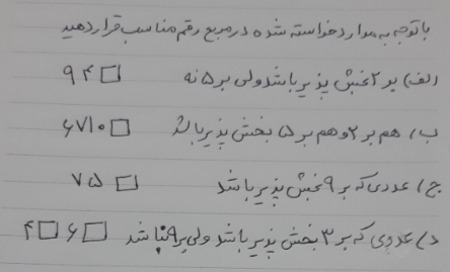 با توجه به موارد خواسته شده در مربع رقم مناسب قرار دهید
الف) بر ۲ بخش پذیر باشد ولی بر ۵ نه ۹۴□
ب) هم بر ۲ و هم بر ۵ بخش پذیر باشد ۶۷۱۰□
ج) عددی که بر ۹ بخش پذیر باشد ۷۵□
د) عددی که بر ۳ بخش پذیر باشد ولی بر ۹ نباشد ۴□۶□